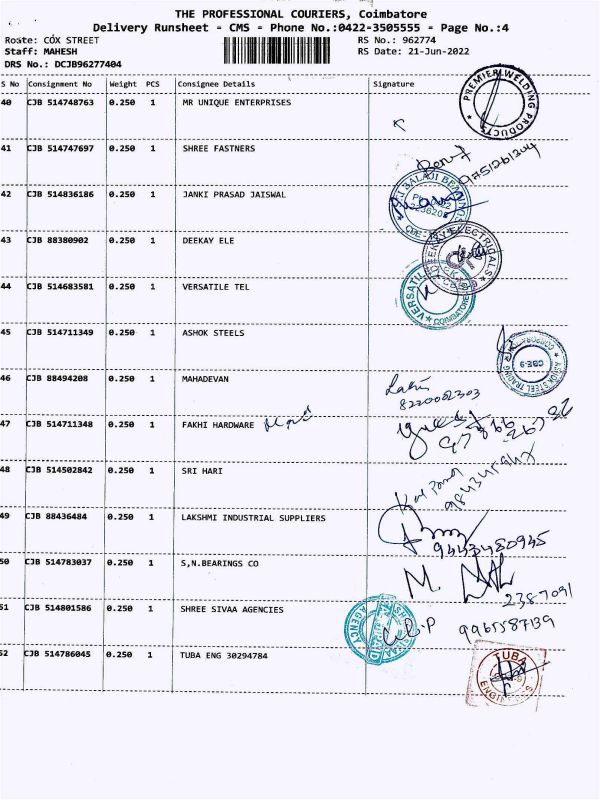 THE PROFESSIONAL COURIERS, Coimbatore
Delivery Runsheet - CMS - Phone No.:0422-3505555 - Page No.:4
Route: COX STREET RS No.: 962774
Staff: MAHESH RS Date: 21-Jun-2022
DRS No.: DCJB96277404
S No Consignment No Weight PCS Consignee Details Signature
40 CJB 514748763 0.250 1 MR UNIQUE ENTERPRISES
PREMIER WELDING PRODUCTS
41 CJB 514747697 0.250 1 SHREE FASTNERS
9751261344
42 CJB 514836186 0.250 1 JANKI PRASAD JAISWAL
BALAJI BEARINGS
43 CJB 88380902 0.250 1 DEEKAY ELE
ELECTRICALS
44 CJB 514683581 0.250 1 VERSATILE TEL
VERSATILE
COIMBATORE
45 CJB 514711349 0.250 1 ASHOK STEELS
ASHOK STEEL TRADING
CBE-9
46 CJB 88494208 0.250 1 MAHADEVAN
8220062303
47 CJB 514711348 0.250 1 FAKHI HARDWARE
48 CJB 514502842 0.250 1 SRI HARI
49 CJB 88436484 0.250 1 LAKSHMI INDUSTRIAL SUPPLIERS
9443480945
50 CJB 514783037 0.250 1 S,N.BEARINGS CO
2387091
51 CJB 514801586 0.250 1 SHREE SIVAA AGENCIES
9965587139
52 CJB 514786045 0.250 1 TUBA ENG 30294784
TUBA